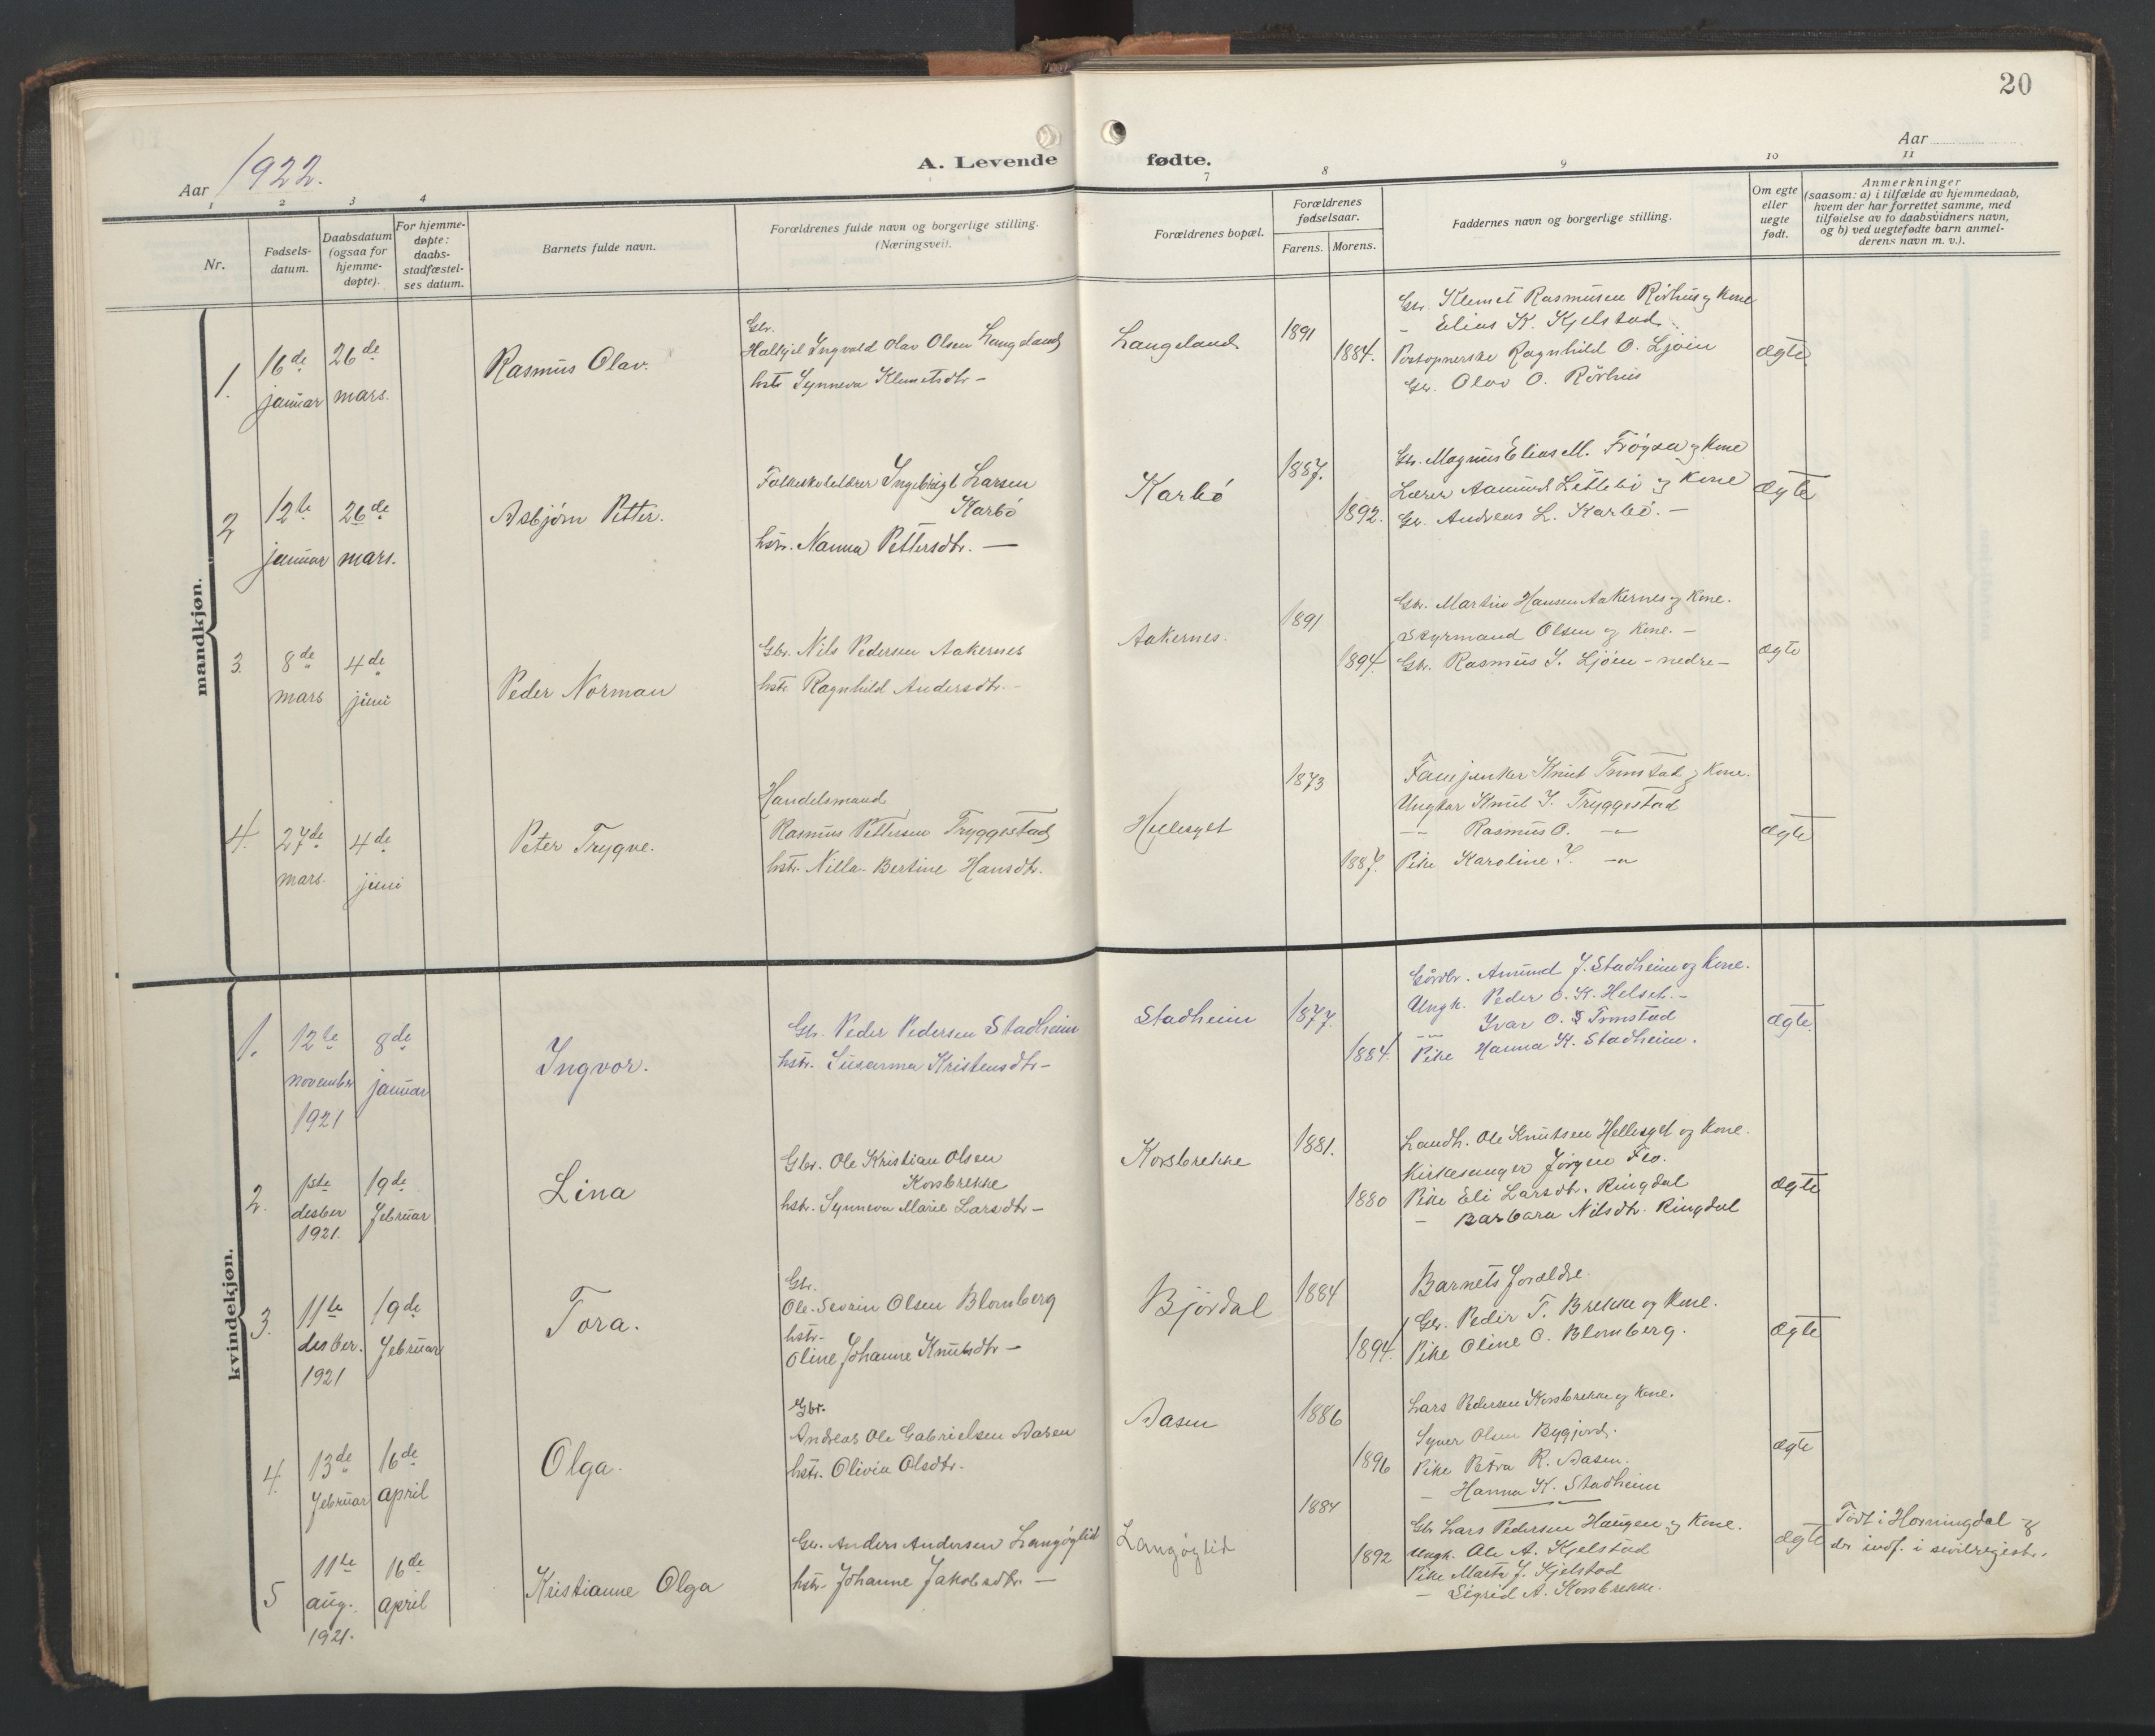 20
Aar 1922.
A. Levende fødte.
Aar
1 2 3 4 7 8 9 10 11
Nr.
Fødsels-
datum.
Daabsdatum
(ogsaa for
hjemme-
døpte).
For hjemme-
døpte:
daabs-
stadfæstel-
ses datum.
Barnets fulde navn.
Forældrenes fulde navn og borgerlige stilling.
(Næringsvei).
Forældrenes bopæl.
Forældrenes
fødselsaar.
Farens. Morens.
Faddernes navn og borgerlige stilling.
Om egte
eller
uegte
født.
Anmerkninger
(saasom: a) i tilfælde av hjemmedaab,
hvem der har forrettet samme, med
tilføielse av to daabsvidners navn,
og b) ved uegtefødte barn anmel-
derens navn m. v.).
mandkjøn.
1.
16de
januar
26de
mars.
Rasmus Olav.
Gbr.
Ingvald Olav Olsen Langeland
hstr Synneva Klemetsdtr -
Langeland
1891
1884.
Gbr. Klemet Rasmusen Rörhus og Kone
- Elias K. Kjelstad.
Ragnhild O. Ljöen
Gbr. Olav O. Rörhus
ægte
2
12te
januar
26de
mars.
Asbjörn Petter.
Folkeskolelærer Ingebrigt Larsen
Karbö
hstr. Nanna Pettersdtr. -
Karbö
1887.
1892.
Gbr. Magnus Elias M. Fröysa og Kone
Lærer Aamund Littlebö og Kone
Gbr. Andreas L. Karbö. -
ægte
3.
8de
mars
4de
juni
Peder Norman
Gbr. Nils Pedersen Aakernes
hstr. Ragnhild Andersdtr. -
Aakernes.
1891
1894.
Gbr. Martin Hansen Aakernes og Kone.
Styrmand Olsen og Kone. -
Gbr. Rasmus I. Ljöen - nedre -
ægte
4.
27de
mars.
4de
juni
Peter Trygve.
Handelsmand
Rasmus Pettersen Tryggestad
hstr. Nilla Bertine Hansdtr.
Hellesylt
1873
1887.
Fanejunker Knut Tronstad og Kone.
Ungkar Knut I. Tryggestad
-"- Rasmus O. -"-
Pike Karoline I. -"-
ægte
kvindekjøn.
1.
12te
november
1921
8de
januar
Ingvor.
Gbr. Peder Pedersen Stadheim
hstr. Susanna Kristensdtr -
Stadheim
1877.
1884.
Gårdbr. Amund J. Stadheim og Kone.
Ungk. Peder O. K. Helset. -
-"- Ivar O. Tronstad
Pike Hanna K. Stadheim.
ægte.
2.
1ste
desber
1921.
19de
februar
Lina
Gbr. Ole Kristian Olsen
Korsbrekke
hstr. Synneva Marie Larsdtr -
Korsbrekke
1881.
1880
Landh. Ole Knutsen Hellesylt og Kone.
Kirkesanger Jörgen Flo.
Pike Eli Larsdtr. Ringdal
- Barbara Nilsdtr. Ringdal
ægte
3.
11te
desber.
1921
19de
februar
Tora.
Gbr.
Ole Severin Olsen Blomberg
hstr.
Oline Johanne Knutsdtr -
Björdal
1884
1894.
Barnets forældre.
Gbr. Peder T. Brekke og Kone.
Pike Oline O. Blomberg.
ægte
4.
13de
februar
16de
april
Olga.
Gbr.
Andreas Ole Gabrielsen Aasen
hstr. Olivia Olsdtr.
Aasen
1886
1896
Lars Pedersen Korsbrekke og Kone.
Syver Olsen Bygjord.
Pike Petra R. Aasen.
- Hanna K. Stadheim
ægte
5
11te
aug.
1921.
16de
april
Kristianne Olga
Gbr. Anders Andersen Langöylid
hstr. Johanne Jakobsdtr. -
Langöylid
1884
1892
Gbr Lars Pedersen Haugen og Kone.
Ungk. Ole A. Kjelstad
Pike Marta J. Kjelstad
- Sigrid A. Korsbrekke.
ægte
Födt i Horningdal og
der indf. i sivilregistr.